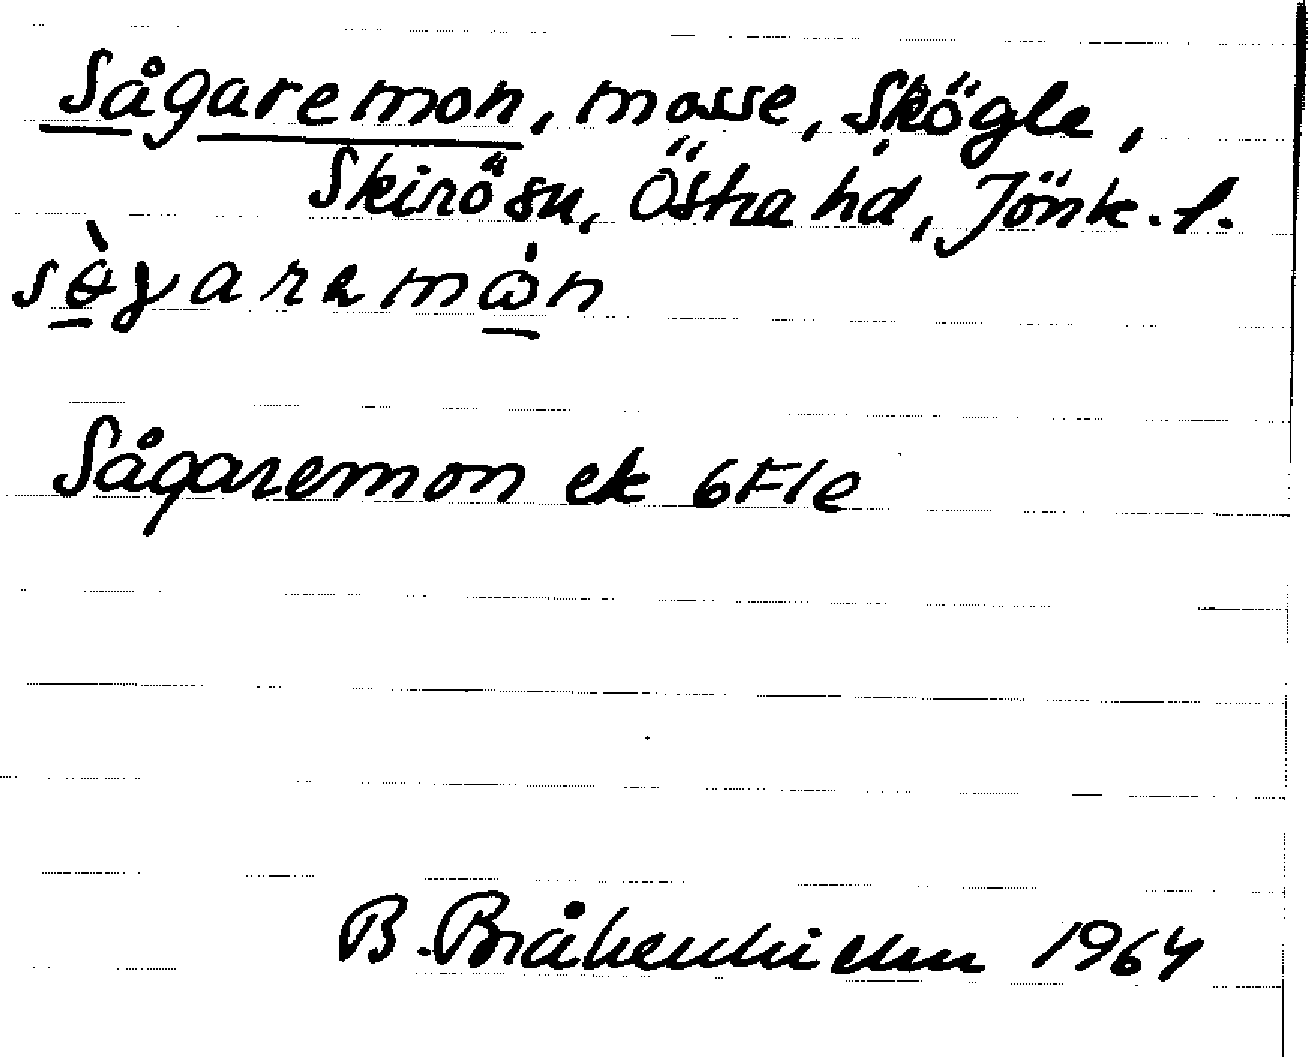 Sågaremon, mosse, Skögle,
Skirö sn, Östra hd, Jönk. l.
Sågaremon ek 6F1e
B. 1964